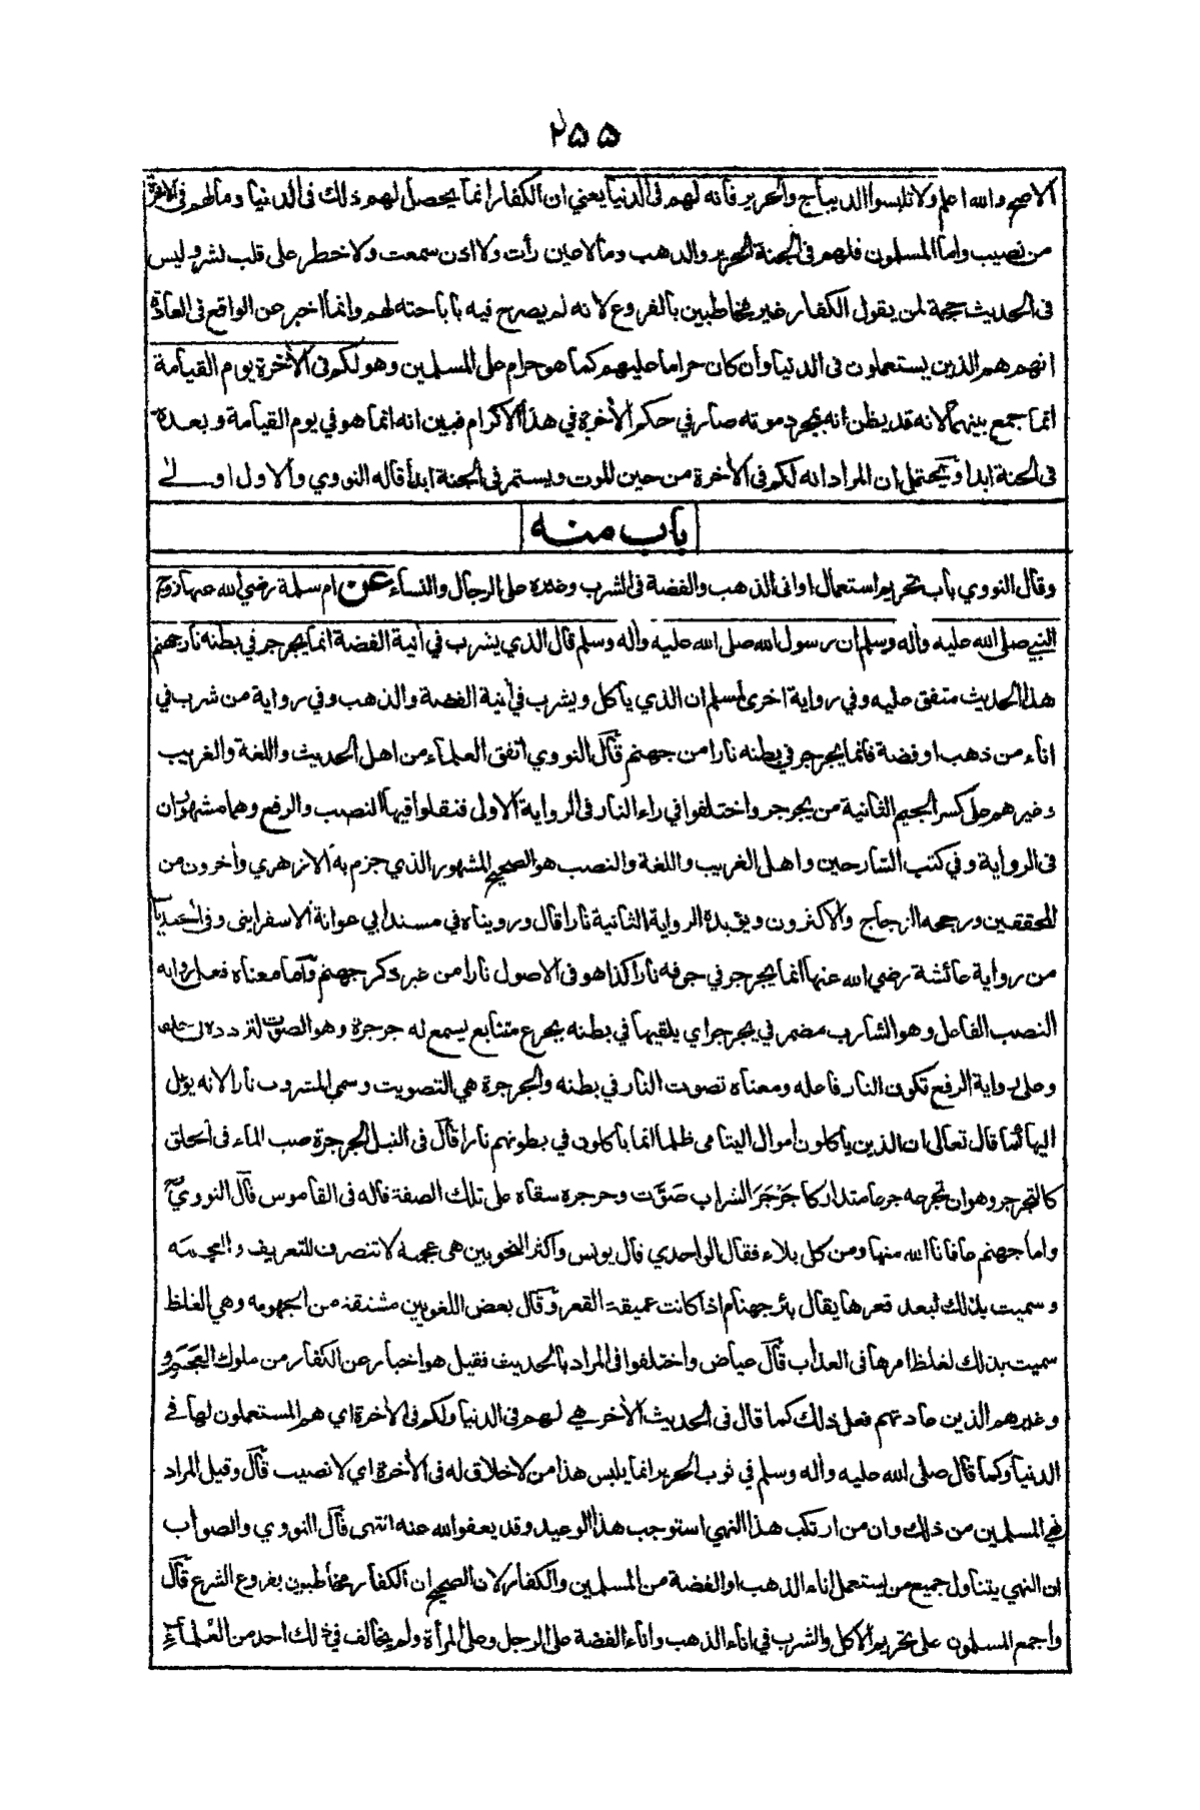 ٢٥٥
الاصح والله اعلم ولا تلبسوا الديباج والحرير فانه لهم فى الدنيا يعني ان الكفار انما يحصل لهم ذلك فى الدنيا وما لهم فى الاخرة
من نصيب واما المسلمون فلهم فى الجنة الحرير والذهب وما لا عين رأت ولا اذن سمعت ولا خطر على قلب بشر وليس
فى الحديث حجة لمن يقول الكفار غير مخاطبين بالفروع لانه لم يصرح فيه بأباحته لهم وانما اخبر عن الواقع فى العادة
انهم هم الذين يستعملون فى الدنيا وأن كان حراما عليهم كما هو حرام على المسلمين وهو لكم فى الأخرة يوم القيامة
انما جمع بينهما لانه قد يظن انه بمجرد موته صار في حكم الأخرة في هذا الاكرام فبين انه انما هو في يوم القيامة وبعده
فى الجنة ابدا ويحتمل ان المراد انه لكم فى الأخرة من حين الموت ويستمر فى الجنة ابدا قاله النووي والاول اولى
باب منه
وقال النووي باب تحريم استعمال اوانى الذهب والفضة فى الشرب وغيره على الرجال والنساء عن ام سلمة رضي الله عنها زوج
النبي صلى الله عليه وأله وسلم ان رسول الله صلى الله عليه وأله وسلم قال الذي يشرب في أنية الفضة انما يجرجر في بطنه نار جهنم
هذا الحديث متفق عليه وفي رواية اخرى لمسلم ان الذي يأكل ويشرب في أنية الفضة والذهب وفي رواية من شرب في
اناء من ذهب او فضة فانما يجرجر في بطنه نارا من جهنم قال النووي اتفق العلماء من اهل الحديث واللغة والغريب
وغيرهم على كسر الجيم الثانية من يجرجر واختلفوا في راء النار فى الرواية الاولى فنقلوا فيها النصب والرفع وهما مشهوران
فى الرواية وفي كتب الشارحين واهل الغريب واللغة والنصب هو الصحيح المشهور الذي جزم به الازهري وأخرون من
المحققين ورجحه الزجاج والاكثرون ويؤيده الرواية الثانية نارا قال ورويناه في مسند ابي عوانة الاسفراينى وفى الجعديات
من رواية عائشة رضي الله عنها انما يجرجر في جوفه نارا كذا هو فى الاصول نارا من غير ذكر جهنم وأما معناه فعلى رواية
النصب الفاعل وهو الشارب مضمر في يجرجر اي يلقيها في بطنه بجرع متتابع يسمع له جرجرة وهو الصوت لتردده فى حلقه
وعلى رواية الرفع تكون النار فاعله ومعناه تصوت النار في بطنه والجرجرة هي التصويت وسمي المشروب نارا لانه يؤل
اليها كما قال تعالى ان الذين يأكلون اموال اليتامى ظلما انما يأكلون في بطونهم نارا قال فى النيل الجرجرة صب الماء فى الحلق
كالتجرجر وهو ان تجرعه جرعا متداركا جَرْجَرَ الشراب صَوَّت وجرجره سقاه على تلك الصفة قاله فى القاموس قال النووي
واما جهنم عافانا الله منها ومن كل بلاء فقال الواحدي قال يونس واكثر النحويين هى عجمية لا تنصرف للتعريف والعجمة
وسميت بذلك لبعد قعرها يقال بئر جهنام اذا كانت عميقة القعر وقال بعض اللغويين مشتقة من الجهومه وهي الغلظ
سميت بذلك لغلظ امرها فى العذاب قال عياض واختلفوا فى المراد بالحديث فقيل هو اخبار عن الكفار من ملوك العجم و
وغيرهم الذين عادتهم فعل ذلك كما قال فى الحديث الأخر هي لهم فى الدنيا ولكم فى الأخرة اي هم المستعملون لها فى
الدنيا وكما قال صلى الله عليه وأله وسلم في ثوب الحرير انما يلبس هذا من لا خلاق له فى الأخرة اي لا نصيب قال وقيل المراد
نهي المسلمين من ذلك وان من ارتكب هذا النهي استوجب هذا الوعيد وقد يعفو الله عنه انتهى قال النووي والصواب
ان النهي يتناول جميع من يستعمل اناء الذهب او الفضة من المسلمين والكفار لان الصحيح ان الكفار مخاطبون بفروع الشرع قال
واجمع المسلمون على تحريم الاكل والشرب في اناء الذهب واناء الفضة على الرجل وعلى المرأة ولم يخالف في ذلك احد من العلماء